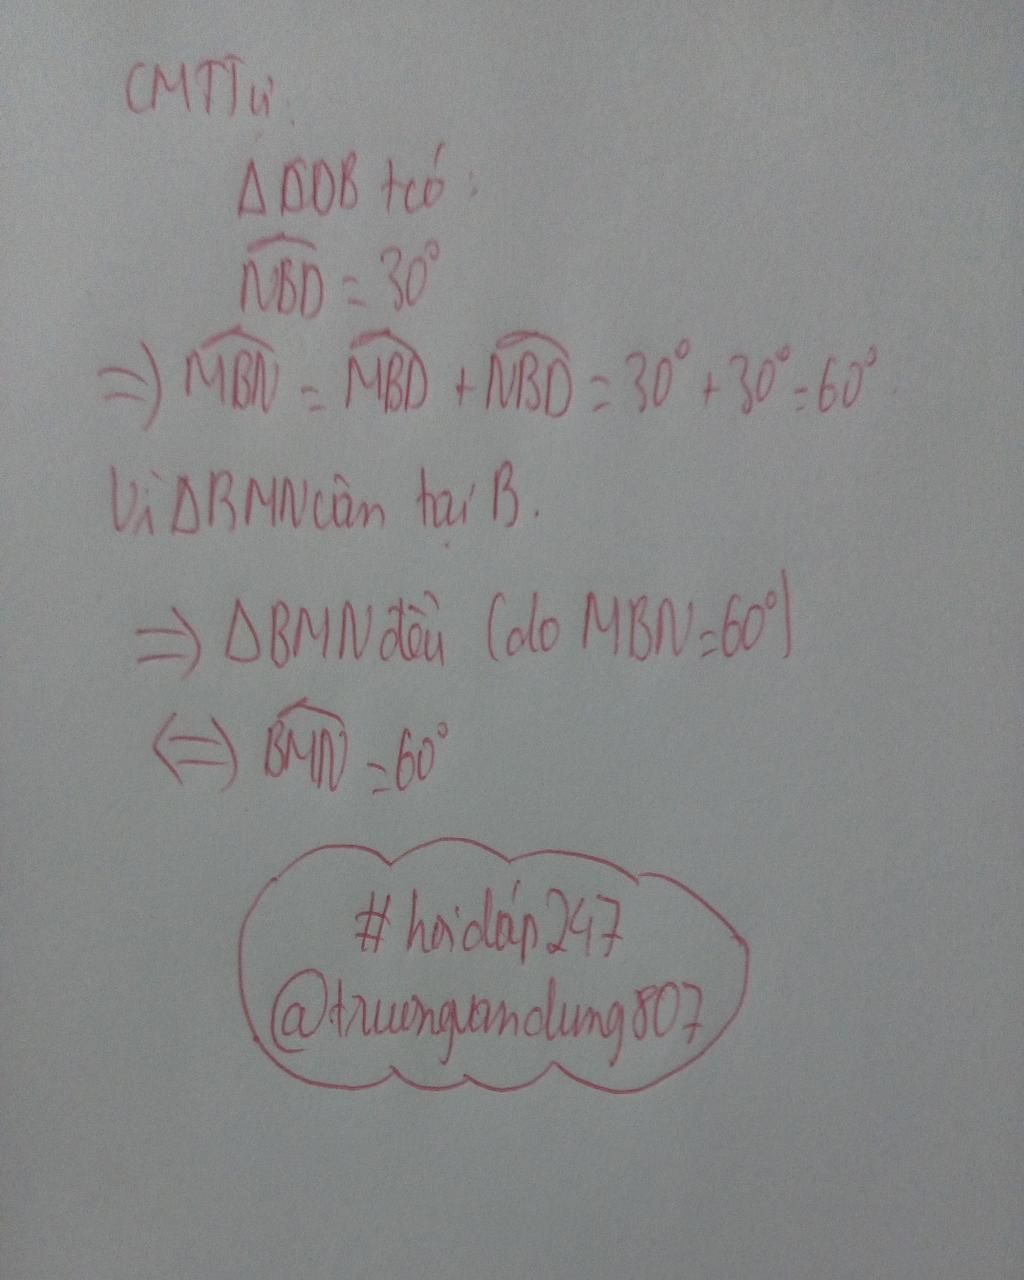 CMTTự
Δ DDB tcó:
NBD = 30°
=) MBN = MBD + NBD = 30° + 30° = 60°.
Vì ΔBMN cân tại B.
=) ΔBMN đều (do MBN = 60°)
(=) BMN = 60°
#hoidáp247
@truongvandung807